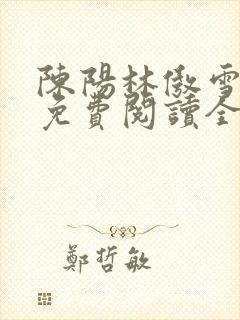 陳陽林傲雪
免費閱讀全
鄭哲敏